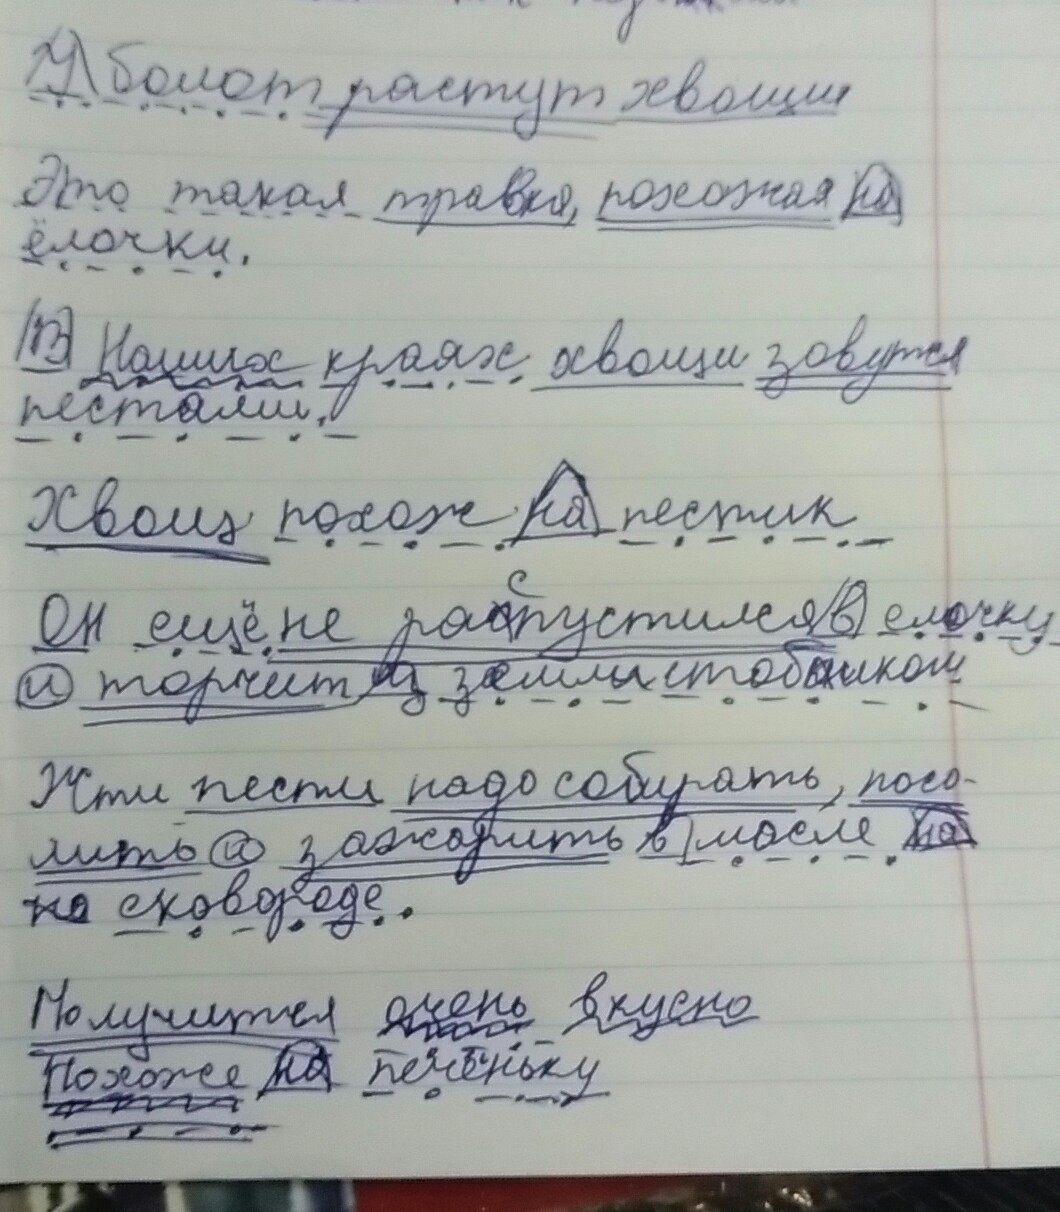 У болот растут хвощи
Это такая травка, похожая на
ёлочки.
В Наших краях хвощи зовутся
пестами.
Хвощ похож на пестик
Он ещё не распустился в елочку
и торчит из земли столбиком
Эти пести надо собирать, посо-
лить и зажарить в масле на
на сковороде.
Получится очень вкусно
Похоже на печеньку